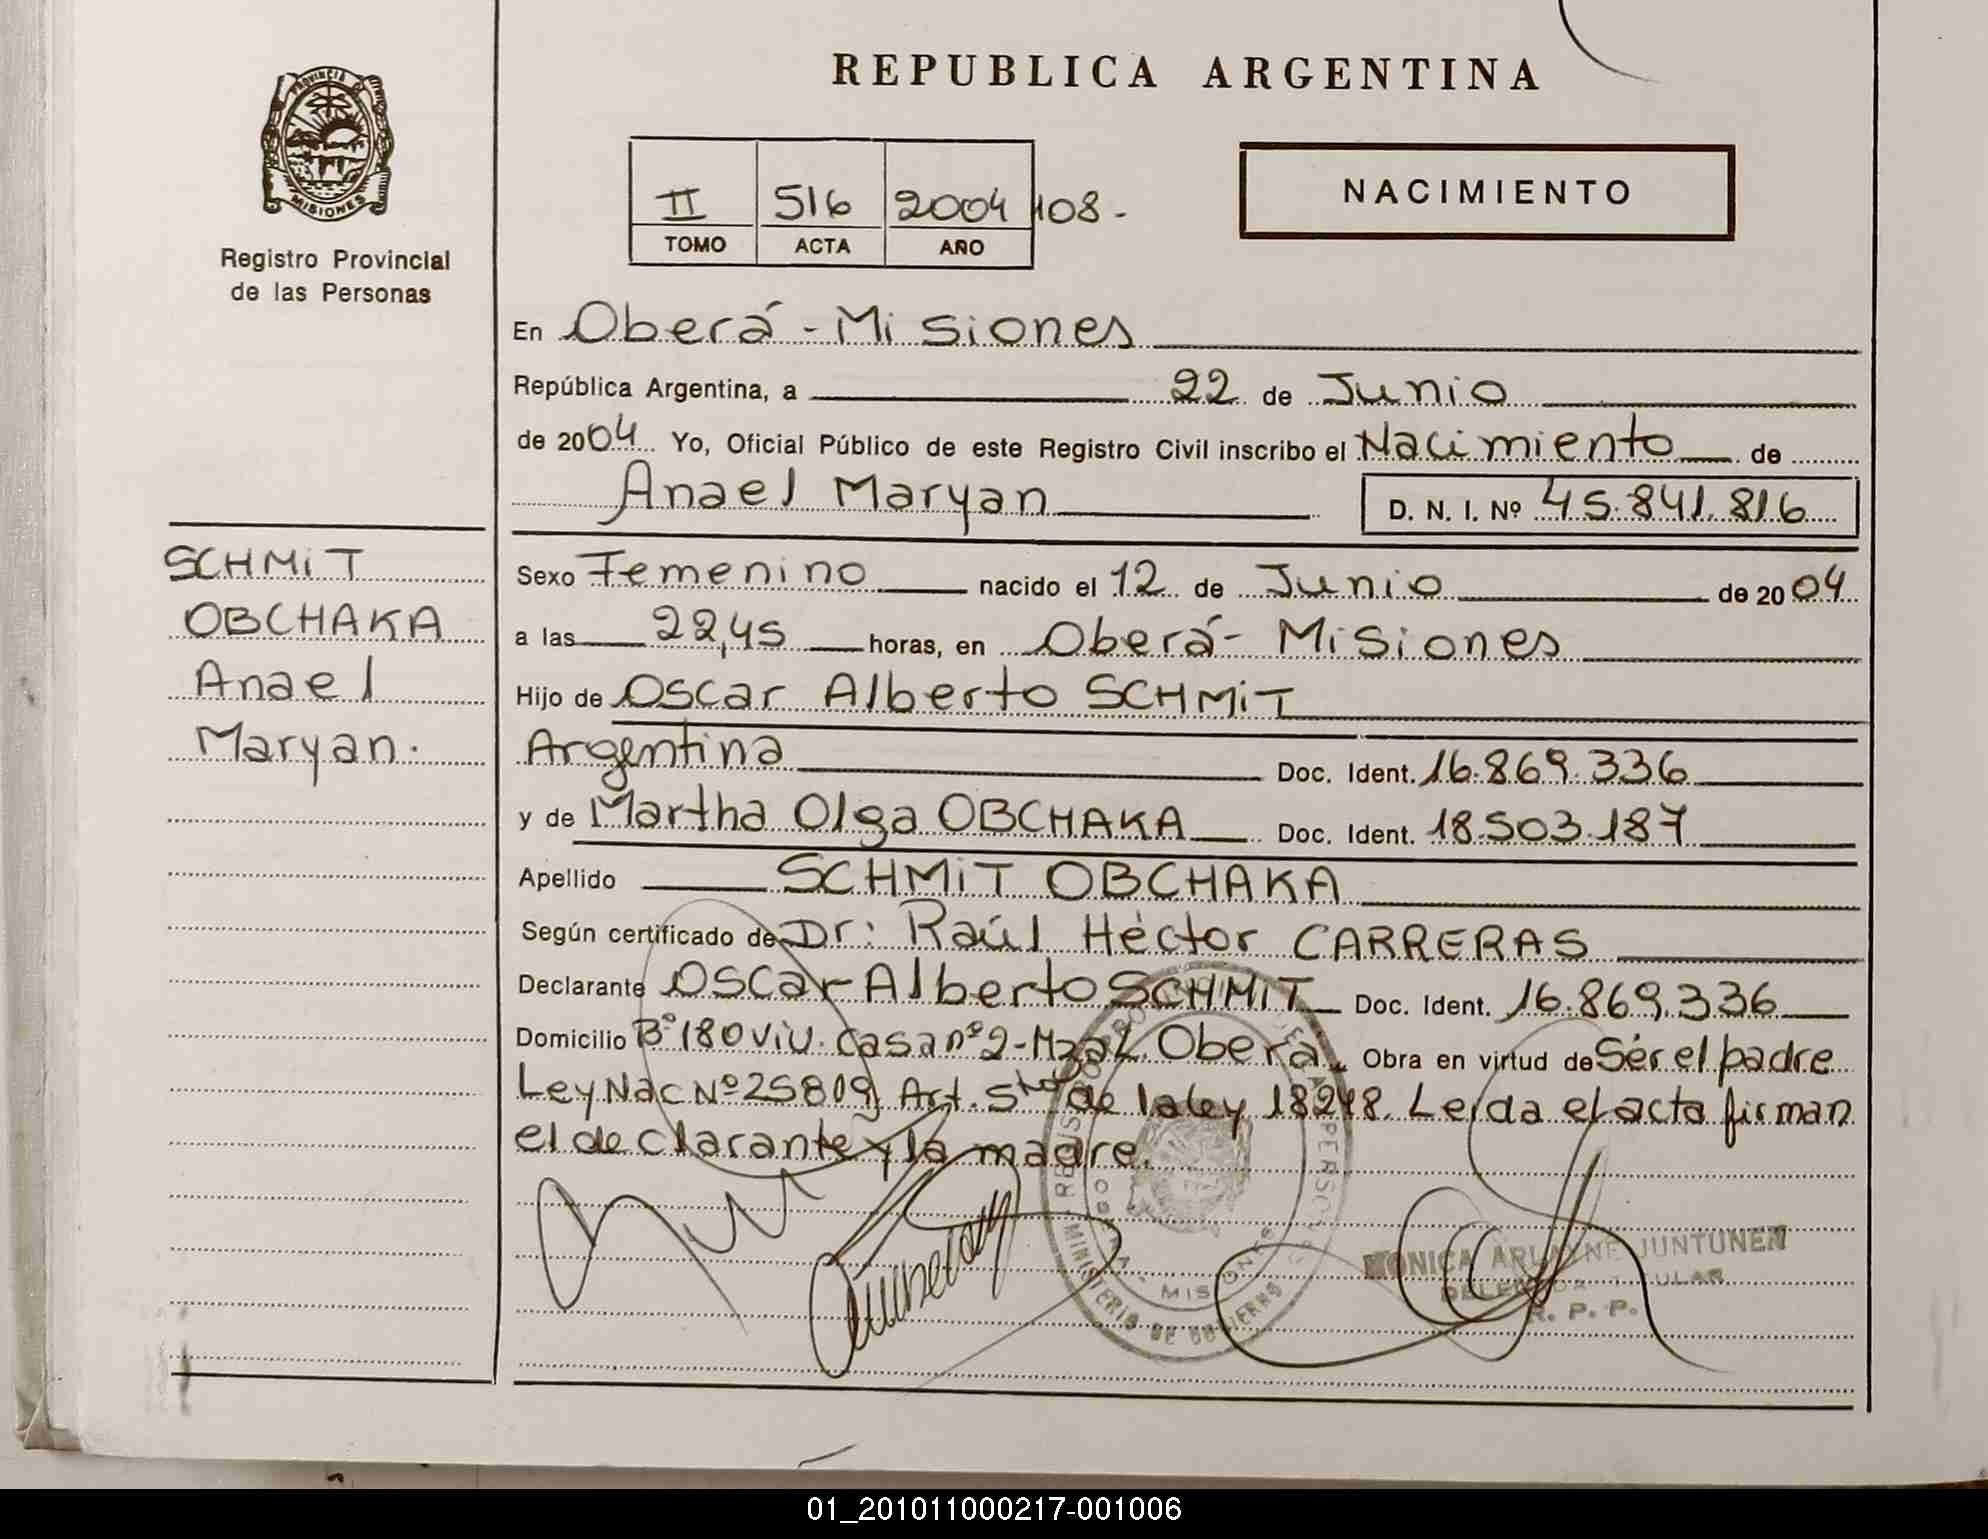 PROVINCIA DE
MISIONES
Registro Provincial
de las Personas
REPUBLICA ARGENTINA
NACIMIENTO
II 516 2004 108-
TOMO ACTA AÑO
En Oberá - Misiones
República Argentina, a 22 de Junio
de 2004 Yo, Oficial Público de este Registro Civil inscribo el Nacimiento de
Anael Maryan D. N. I. Nº 45.841.816
SCHMiT
OBCHAKA
Anael
Maryan.
Sexo Femenino nacido el 12 de Junio de 2004
a las 22,45 horas, en Oberá - Misiones
Hijo de Oscar Alberto SCHMiT
Argentina Doc. Ident. 16.869.336
y de Martha Olga OBCHAKA Doc. Ident. 18.503.187
Apellido SCHMiT OBCHAKA
Según certificado de Dr: Raúl Héctor CARRERAS
Declarante Oscar Alberto SCHMiT Doc. Ident. 16.869.336
Domicilio Bº 180 viv. Casa nº 2 - Mza L. Oberá. Obra en virtud de Ser el padre
Ley Nac Nº 25809, Art. 5to de la ley 18248. Leida el acta firman
el declarante y la madre.
MINISTERIO DE GOBIERNO
MONICA ARLAYNE JUNTUNEN
DELEGADA TITULAR
R. P. P.
01_201011000217-001006